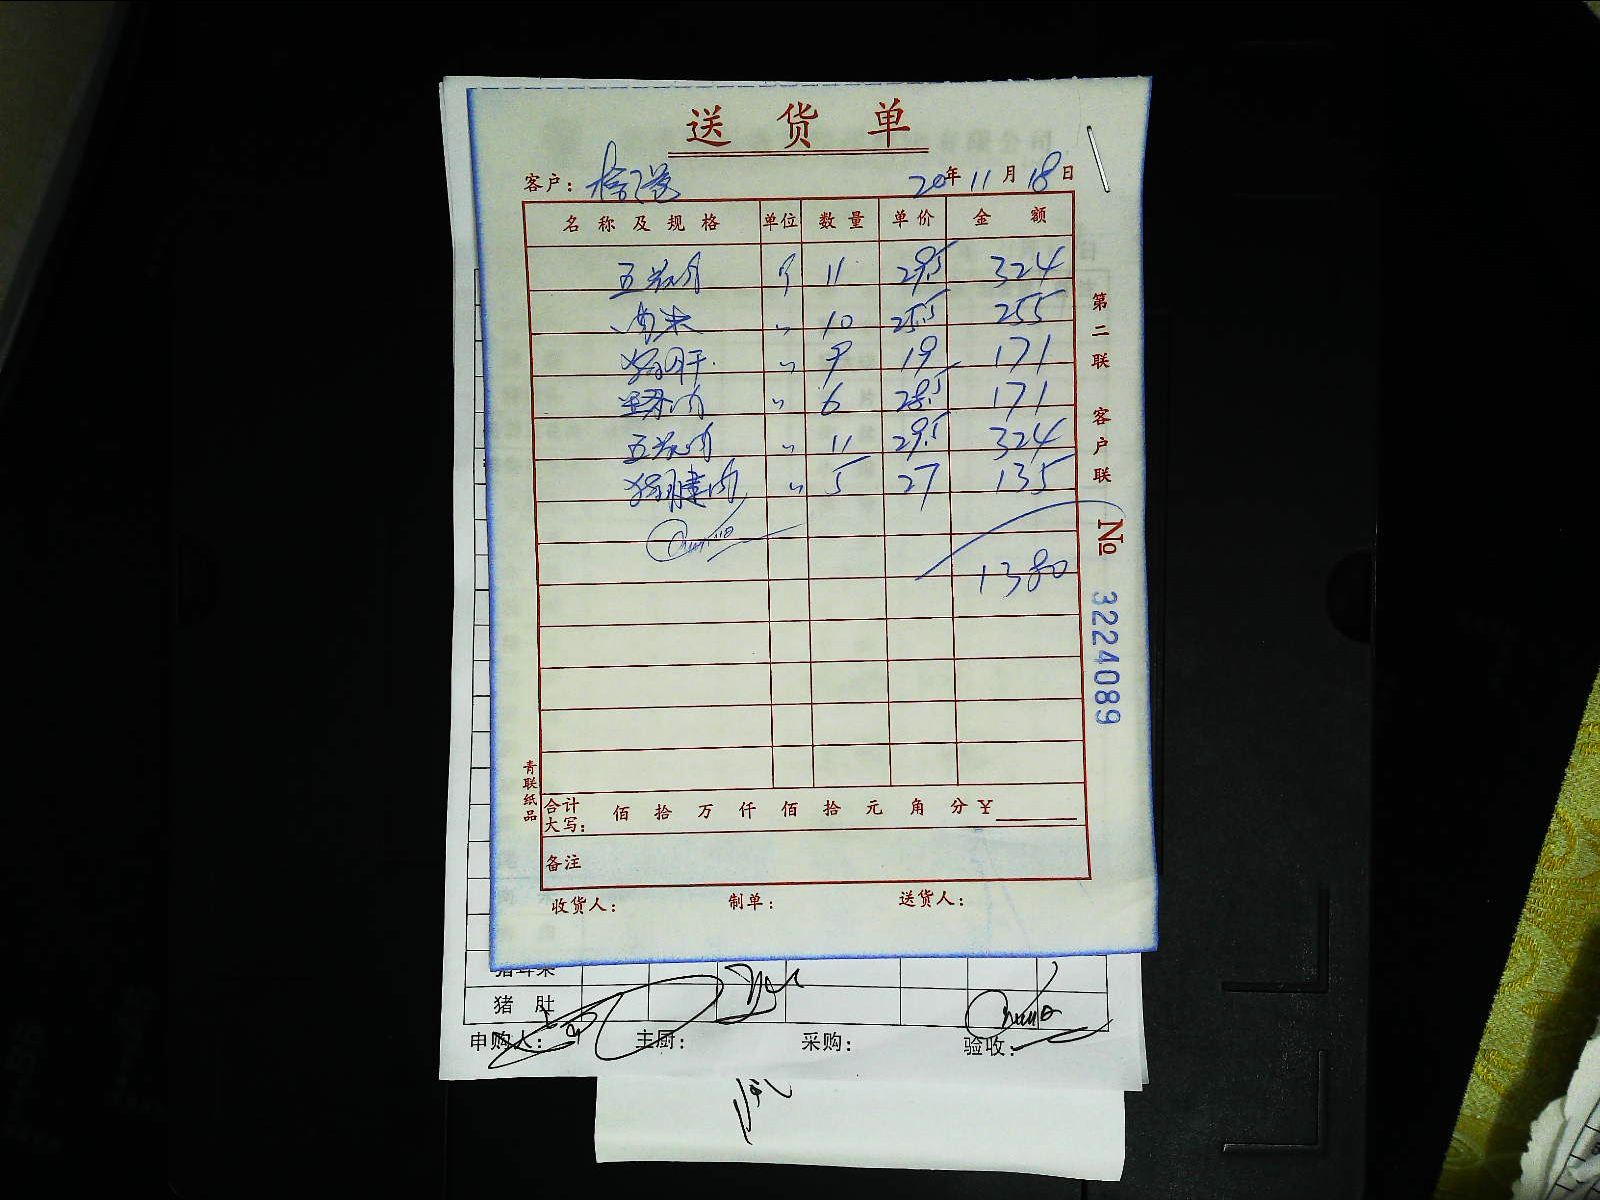 送货单
客户：
20年11月18日
名称及规格 单位 数量 单价 金额
五花肉 斤 11 29.5 324
肉末 〃 10 25.5 255
猪肝 〃 9 19 171
里脊肉 〃 6 28.5 171
五花肉 〃 11 29.5 324
猪腱肉 〃 5 27 135
1380
合计大写： 佰拾万仟佰拾元角分￥
备注
收货人： 制单： 送货人：
第二联 客户联
№ 3224089
青联纸品
猪肚
申购人： 主厨： 采购： 验收：